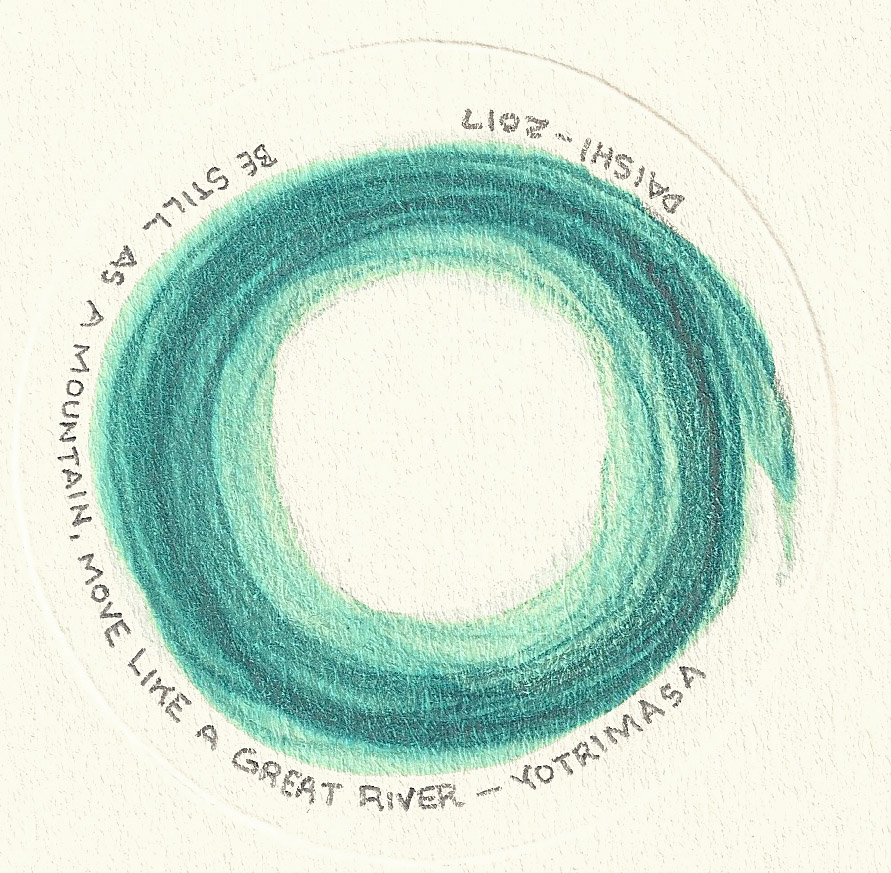 BE STILL AS A MOUNTAIN, MOVE LIKE A GREAT RIVER - YOTRIMASA
DAISHI-2017